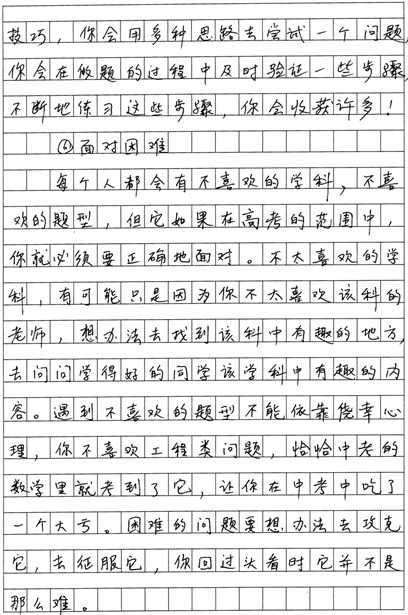 技巧，你会用多种思路去尝试一个问题，
你会在做题的过程中及时验证一些步骤，
不断地练习这些步骤，你会收获许多！
⑥面对困难
每个人都会有不喜欢的学科，不喜
欢的题型，但它如果在高考的范围中，
你就必须要正确地面对。不太喜欢的学
科，有可能只是因为你不太喜欢该科的
老师，想办法去找到该科中有趣的地方，
去问问学得好的同学该学科中有趣的内
容。遇到不喜欢的题型不能依靠侥幸心
理，你不喜欢工程类问题，恰恰中考的
数学里就考到了它，让你在中考中吃了
一个大亏。困难的问题要想办法去攻克
它，去征服它，你回过头看时它并不是
那么难。